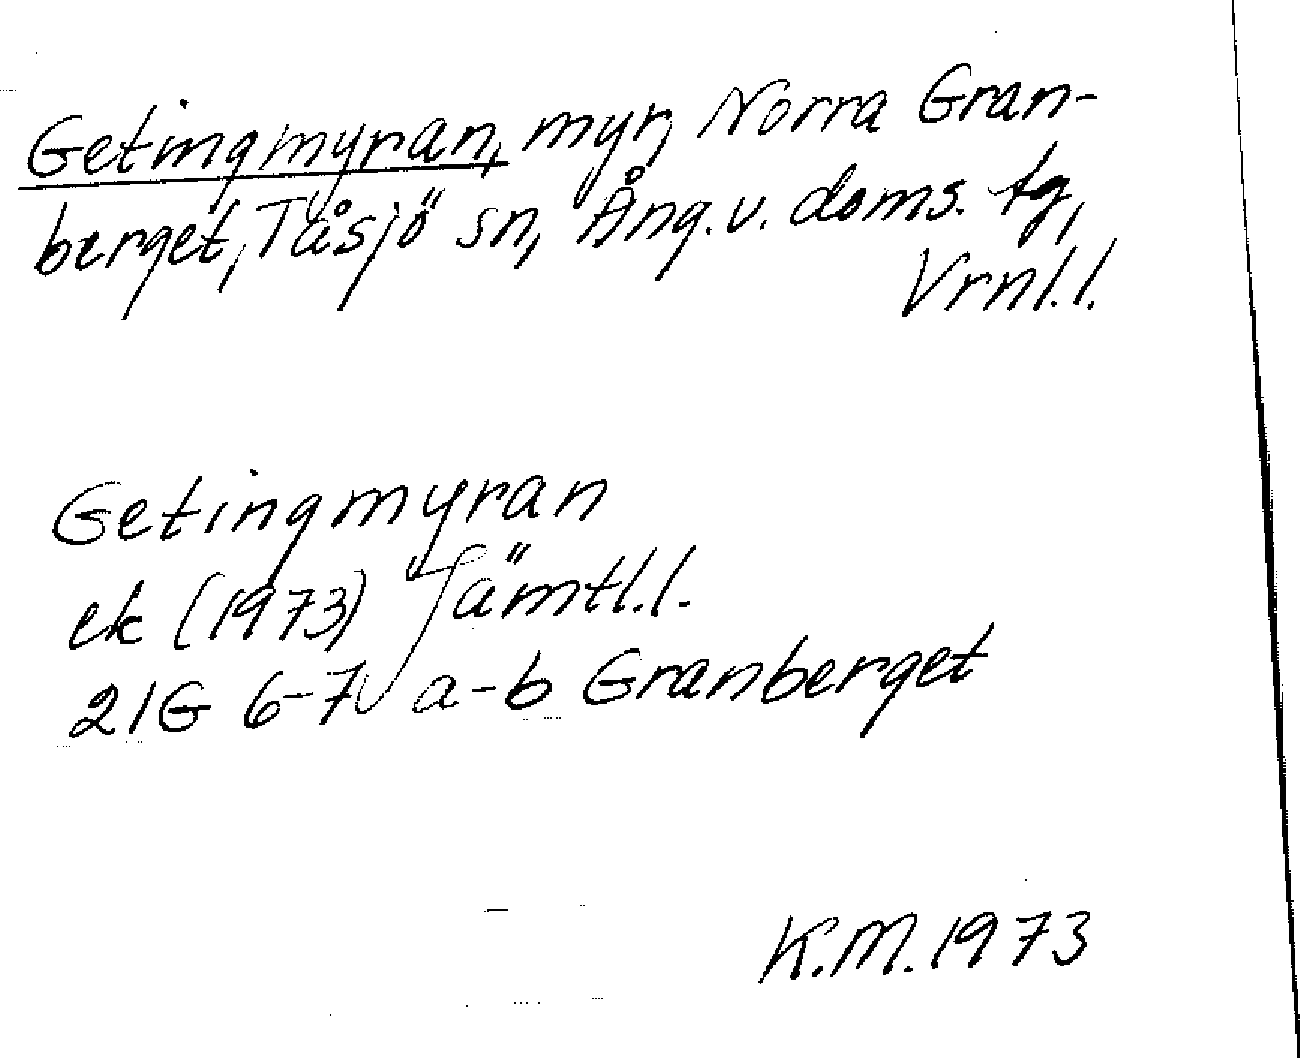 Getingmyran, myr, Norra Gran-
berget, Tåsjö sn, Ång.v. doms. tg,
Vrnl.l.
Getingmyran
ek (1973) Jämtl.l.
21G 6-7 a-b Granberget
K.M. 1973